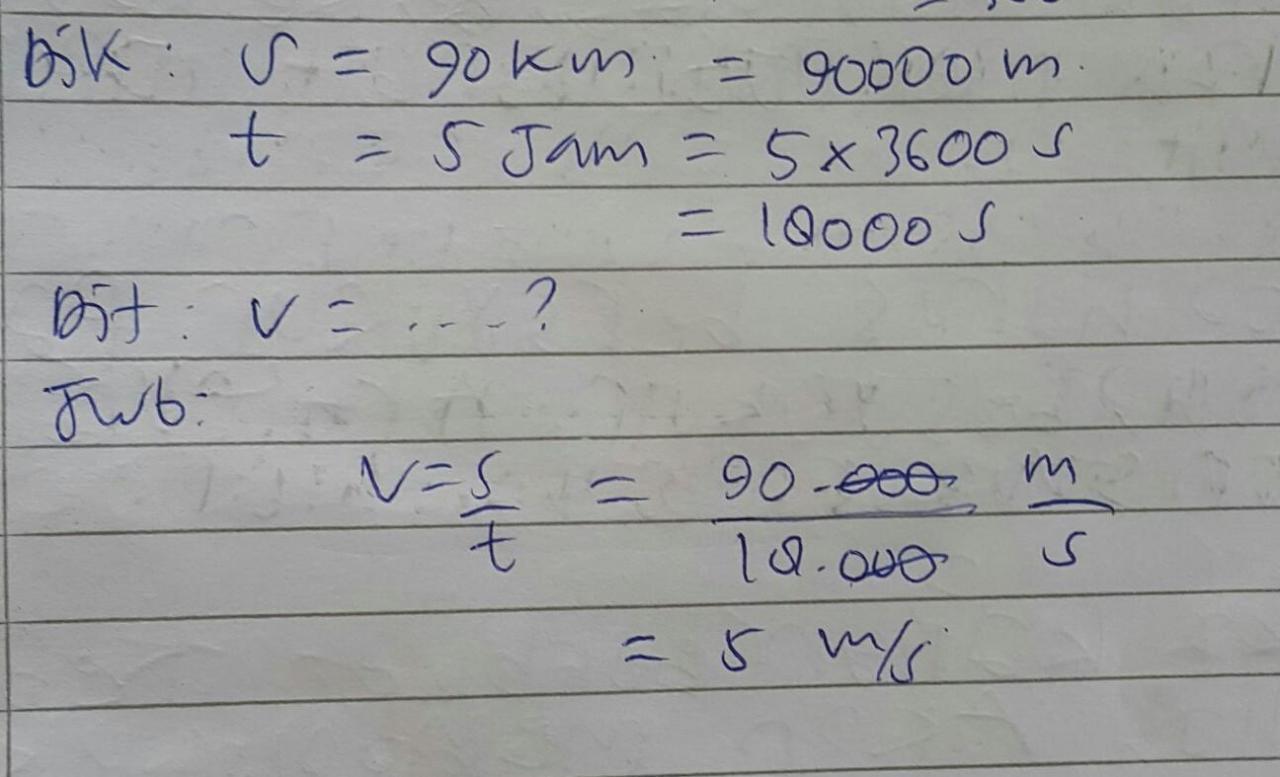 Dik : S = 90 km = 90000 m.
t = 5 Jam = 5 x 3600 s
= 18000 s
Dit : V = .... ?
Jwb :
V = s/t = 90.000/18.000 m/s
= 5 m/s